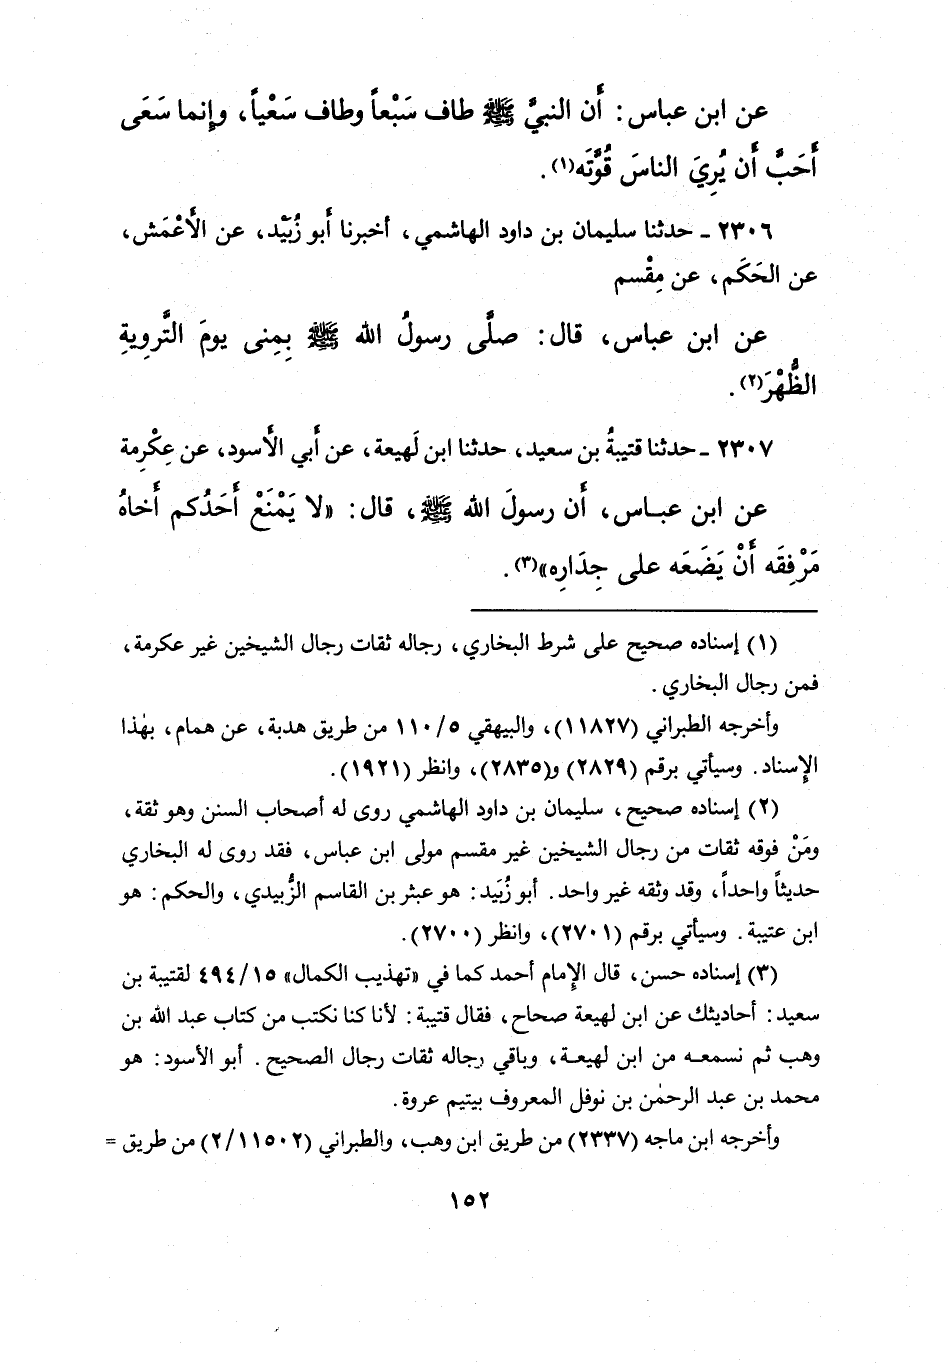 عن ابن عباس: أَن النبيَّ ﷺ طاف سَبْعاً وطاف سَعْياً، وإِنما سَعَى
أَحَبَّ أَن يُرِيَ الناسَ قُوَّتَه(١).
٢٣٠٦ ـ حدثنا سليمان بن داود الهاشمي، أخبرنا أَبو زُبَيْد، عن الأَعْمَش،
عن الحَكَم، عن مِقْسم
عن ابن عباس، قال: صلَّى رسولُ الله ﷺ بِمِنى يومَ التَّرويةِ
الظُّهْرَ(٢).
٢٣٠٧ ـ حدثنا قتيبةُ بن سعيد، حدثنا ابن لَهيعة، عن أَبي الأَسود، عن عِكْرِمة
عن ابن عبـاس، أَن رسولَ الله ﷺ، قال: «لا يَمْنَعْ أَحَدُكم أَخاهُ
مَرْفِقَه أَنْ يَضَعَه على جِدَارِه»(٣).
(١) إسناده صحيح على شرط البخاري، رجاله ثقات رجال الشيخين غير عكرمة،
فمن رجال البخاري.
وأخرجه الطبراني (١١٨٢٧)، والبيهقي ١١٠/٥ من طريق هدبة، عن همام، بهٰذا
الإِسناد. وسيأتي برقم (٢٨٢٩) و(٢٨٣٥)، وانظر (١٩٢١).
(٢) إسناده صحيح، سليمان بن داود الهاشمي روى له أصحاب السنن وهو ثقة،
ومَنْ فوقه ثقات من رجال الشيخين غير مقسم مولى ابن عباس، فقد روى له البخاري
حديثاً واحداً، وقد وثقه غير واحد. أبو زُبَيد: هو عبثر بن القاسم الزُّبيدي، والحكم: هو
ابن عتيبة. وسيأتي برقم (٢٧٠١)، وانظر (٢٧٠٠).
(٣) إسناده حسن، قال الإِمام أحمد كما في «تهذيب الكمال» ٤٩٤/١٥ لقتيبة بن
سعيد: أحاديثك عن ابن لهيعة صحاح، فقال قتيبة: لأنا كنا نكتب من كتاب عبد الله بن
وهب ثم نسمعـه من ابن لهيعـة، وباقي رجاله ثقات رجال الصحيح. أبو الأسود: هو
محمد بن عبد الرحمٰن بن نوفل المعروف بيتيم عروة.
وأخرجه ابن ماجه (٢٣٣٧) من طريق ابن وهب، والطبراني (٢/١١٥٠٢) من طريق =
١٥٢